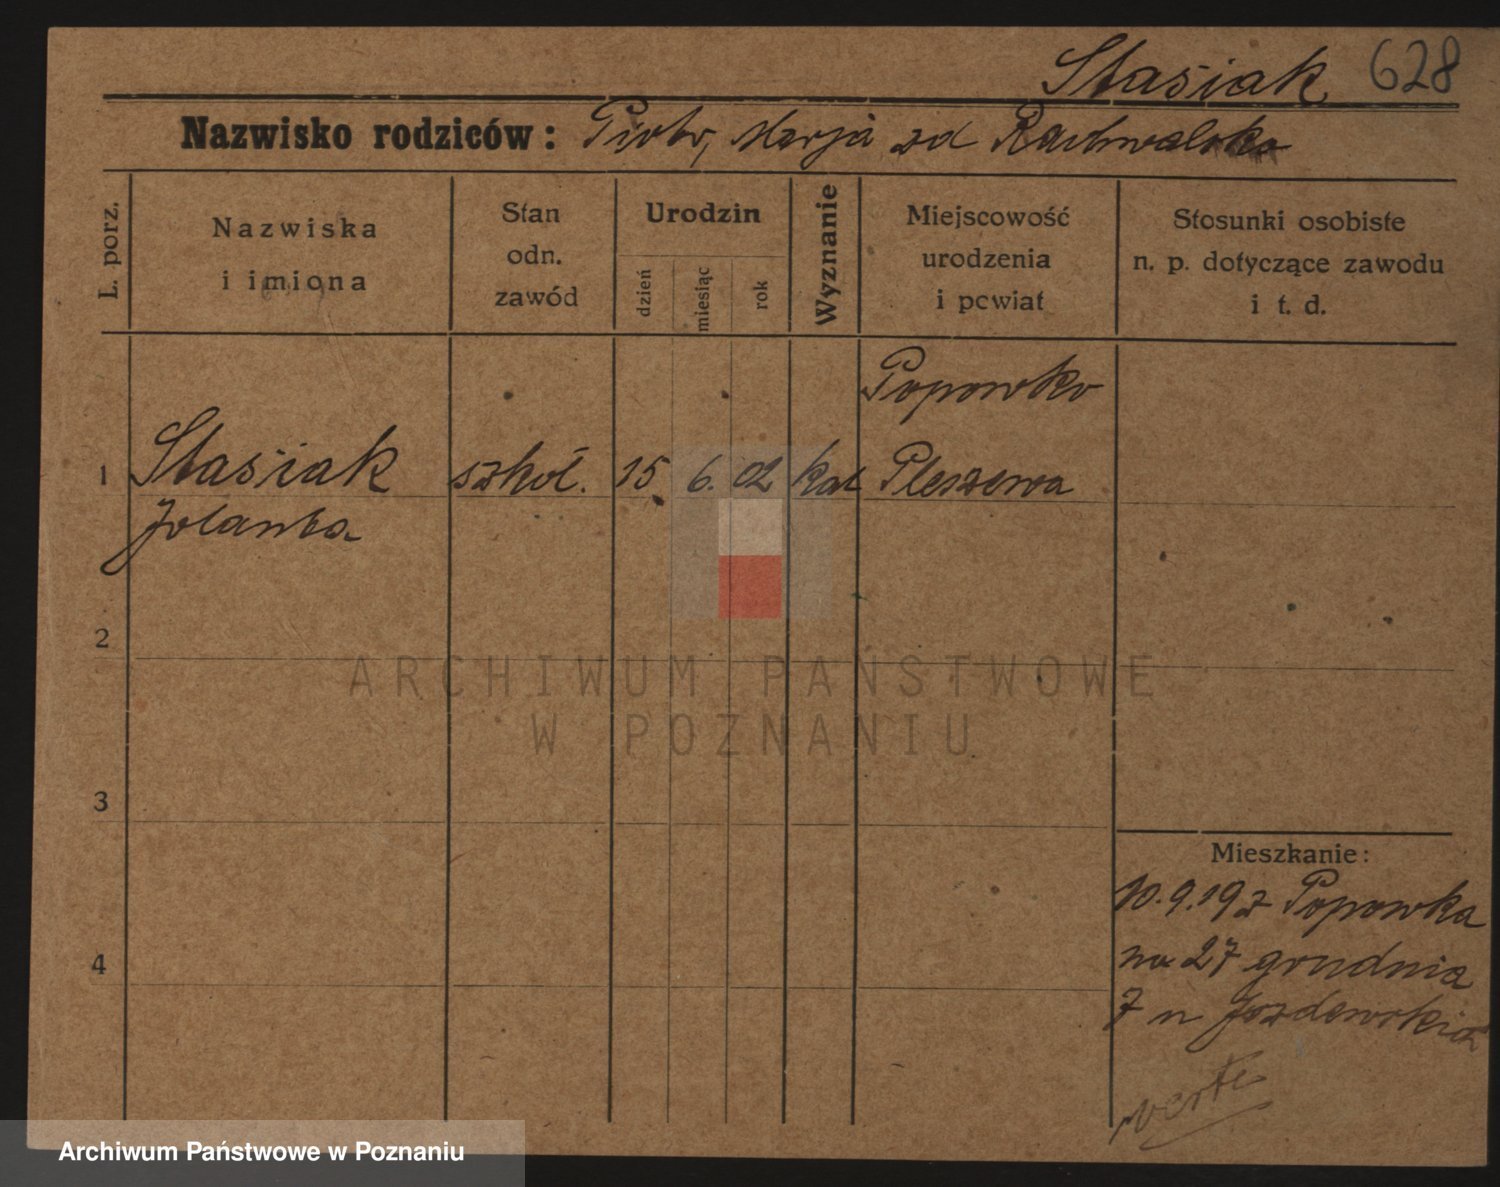 Stasiak 628
Nazwisko rodziców: Piotr, Marja zd Rachwalska
L. porz.
Nazwiska
i imiona
Stan
odn.
zawód
Urodzin
dzień
miesiąc
rok
Wyznanie
Miejscowość
urodzenia
i powiat
Stosunki osobiste
n. p. dotyczące zawodu
i t. d.
Popowko
1 Stasiak szkol. 15 6. 02 kat Pleszewa
Jolanta
2
ARCHIWUM PAŃSTWOWE
W POZNANIU
3
Mieszkanie:
10.9.19 z Popowka
4
na 27 grudnia
7 u
verte
Archiwum Państwowe w Poznaniu